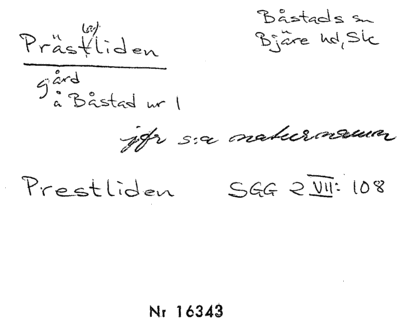 Prästliden
Båstads sn
Bjäre hd, Sk
gård
å Båstad nr 1
jfr s:a naturnamn
Prestliden SGG 2 VII: 108
Nr 16343